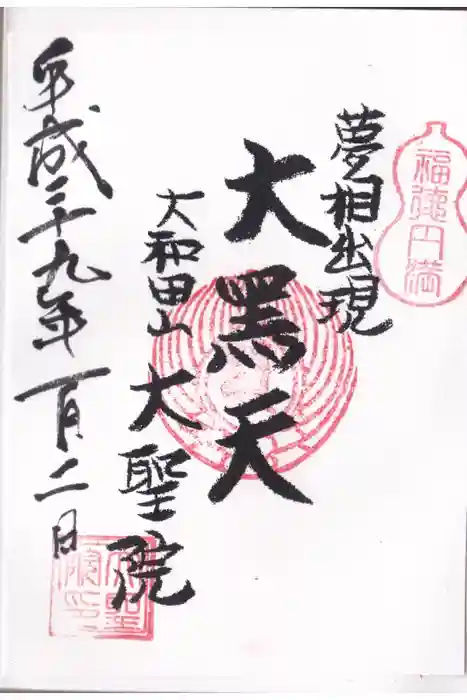 福徳円満
夢相出現
大黑天
大和田山
大聖院
平成二十九年 一月二日
大聖院印